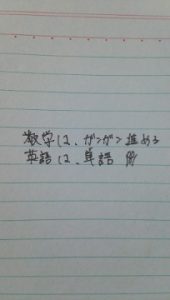 数学は、ガンガン進める
英語は、単語